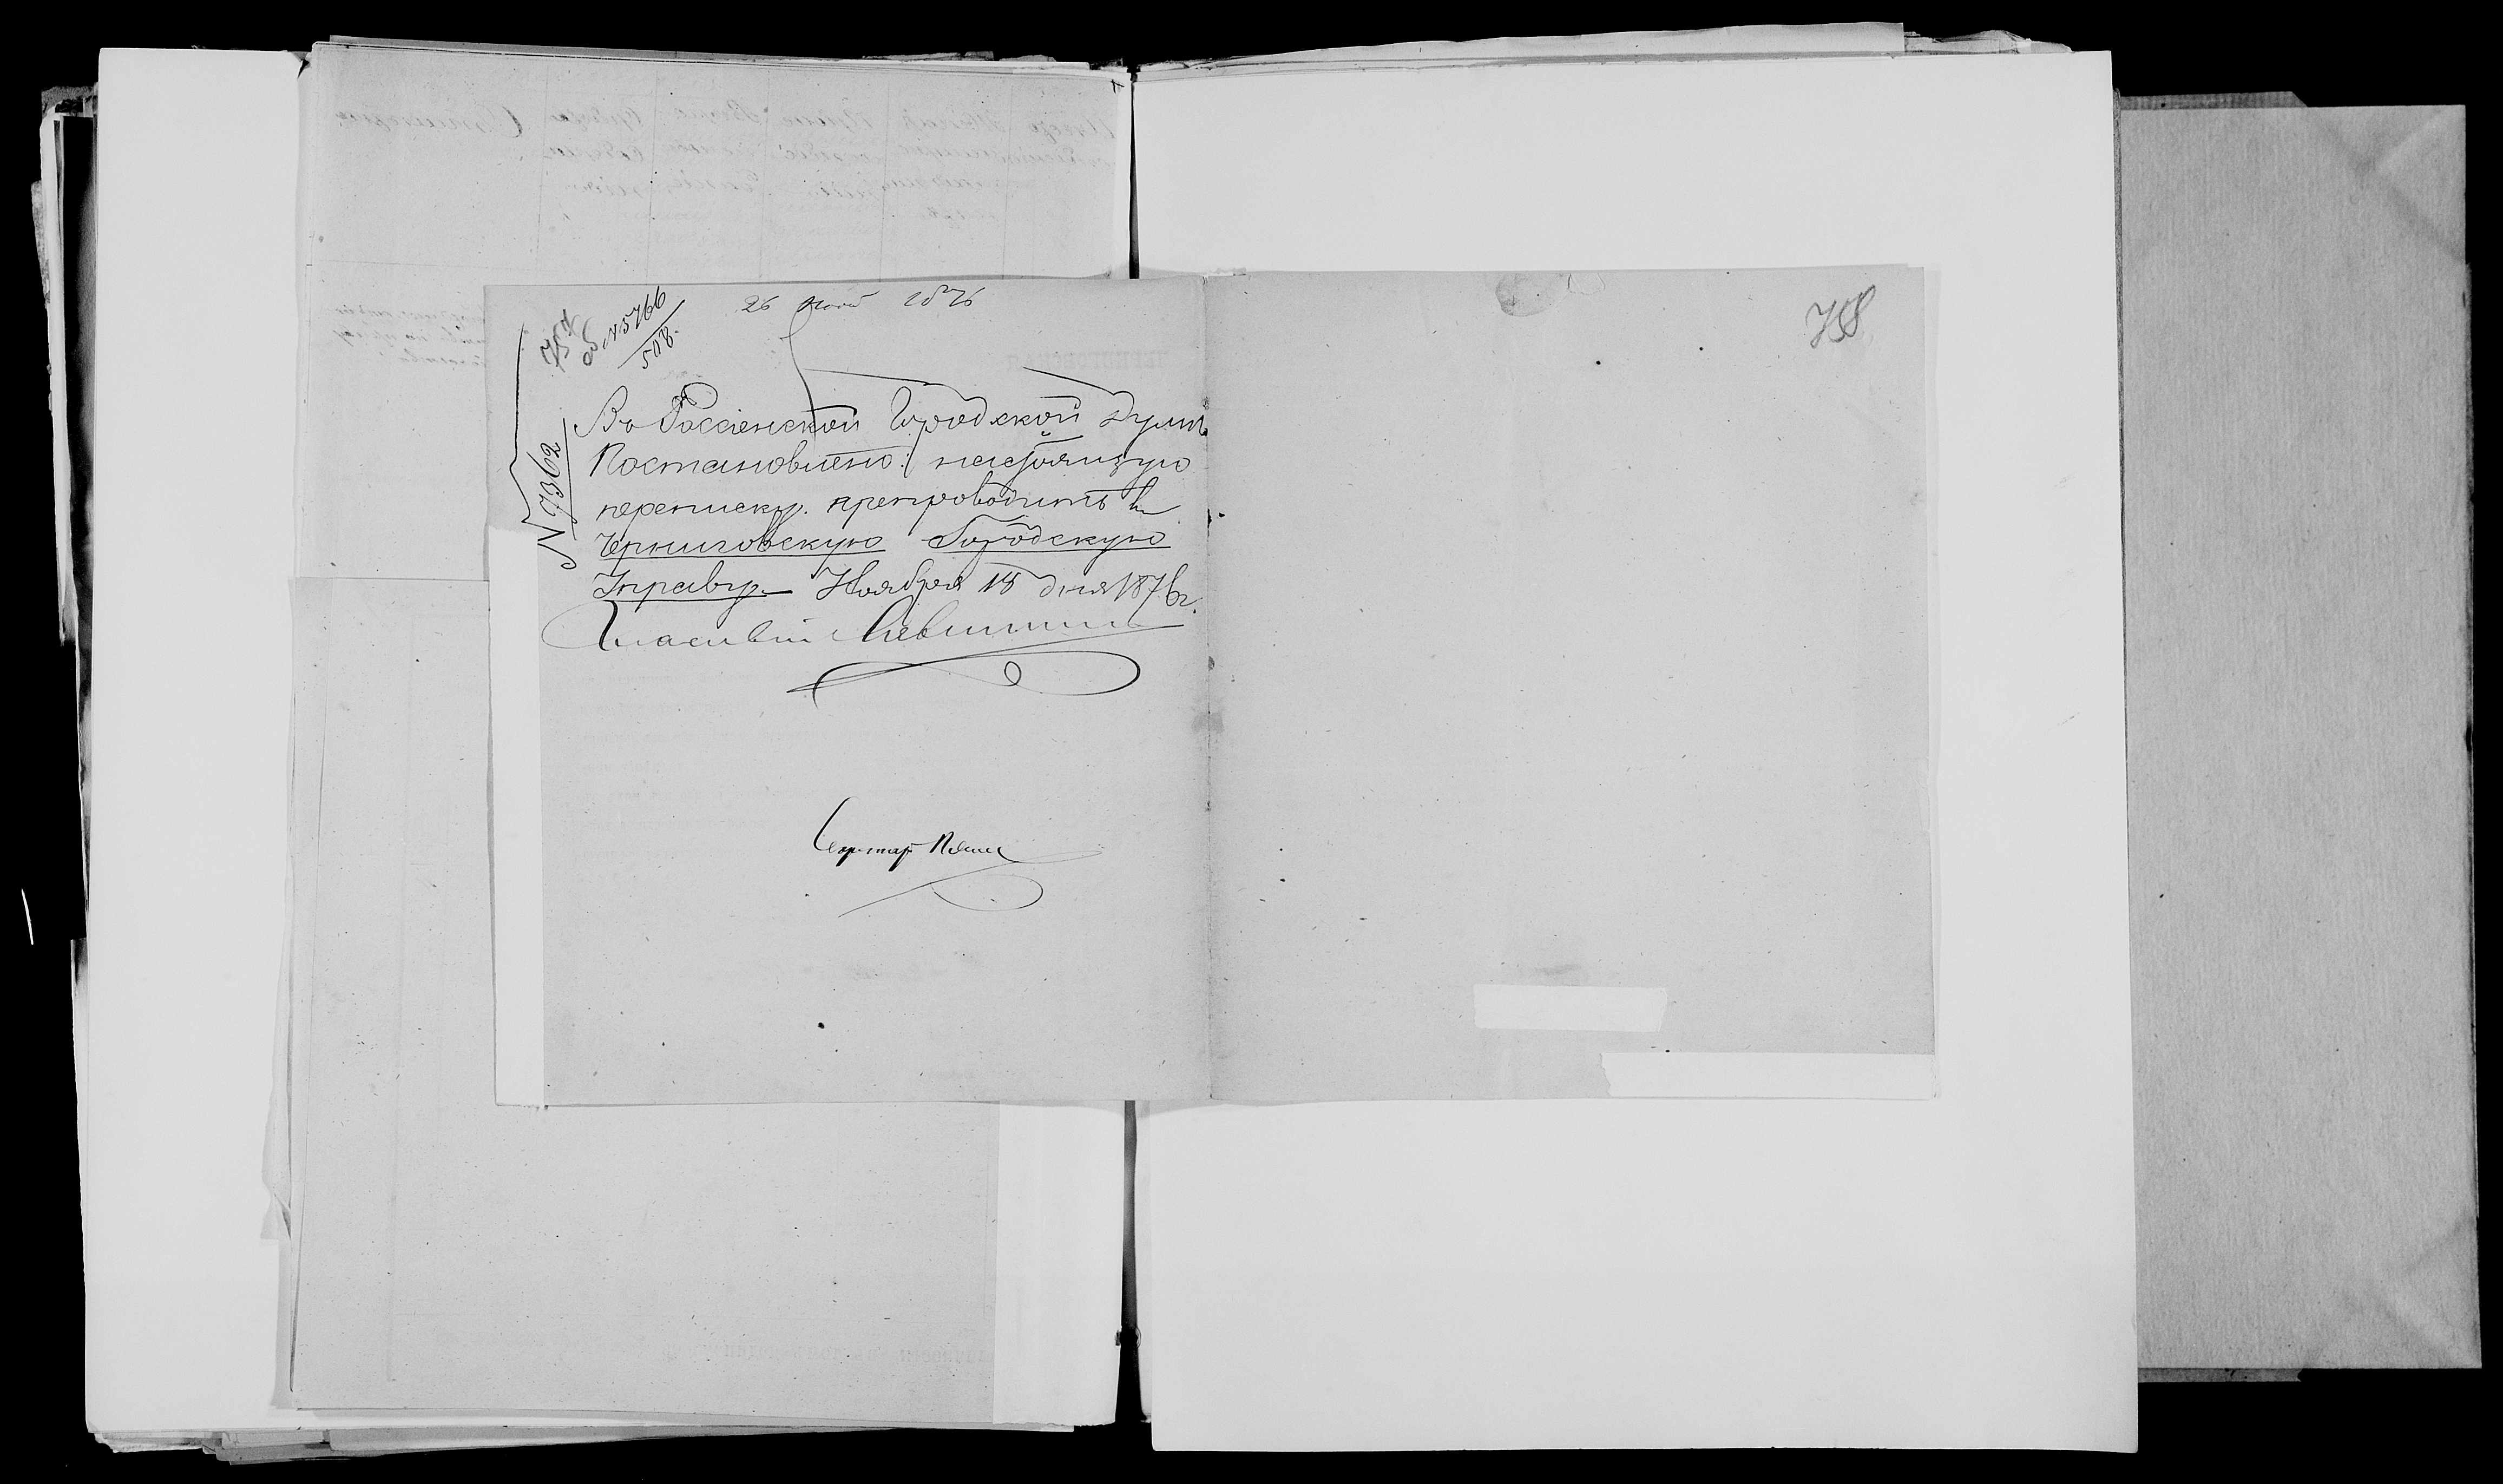 26 Нояб 1876
№ 5766
508.
78
№ 7362
Въ Россіенской Городской Думѣ
Постановлено: настоящую
переписку препроводить въ
Черниговскую Городскую
Управу. Ноября 18 дня 1876 г.
Гласный Левитинъ
Секретарь